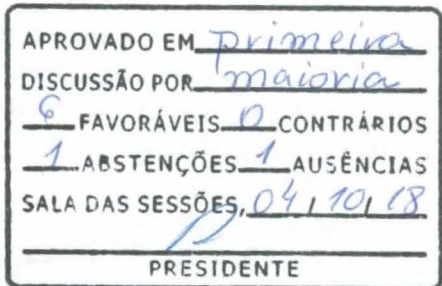 APROVADO EM primeira
DISCUSSÃO POR maioria
6 FAVORÁVEIS 0 CONTRÁRIOS
1 ABSTENÇÕES 1 AUSÊNCIAS
SALA DAS SESSÕES, 04 / 10 / 18
PRESIDENTE